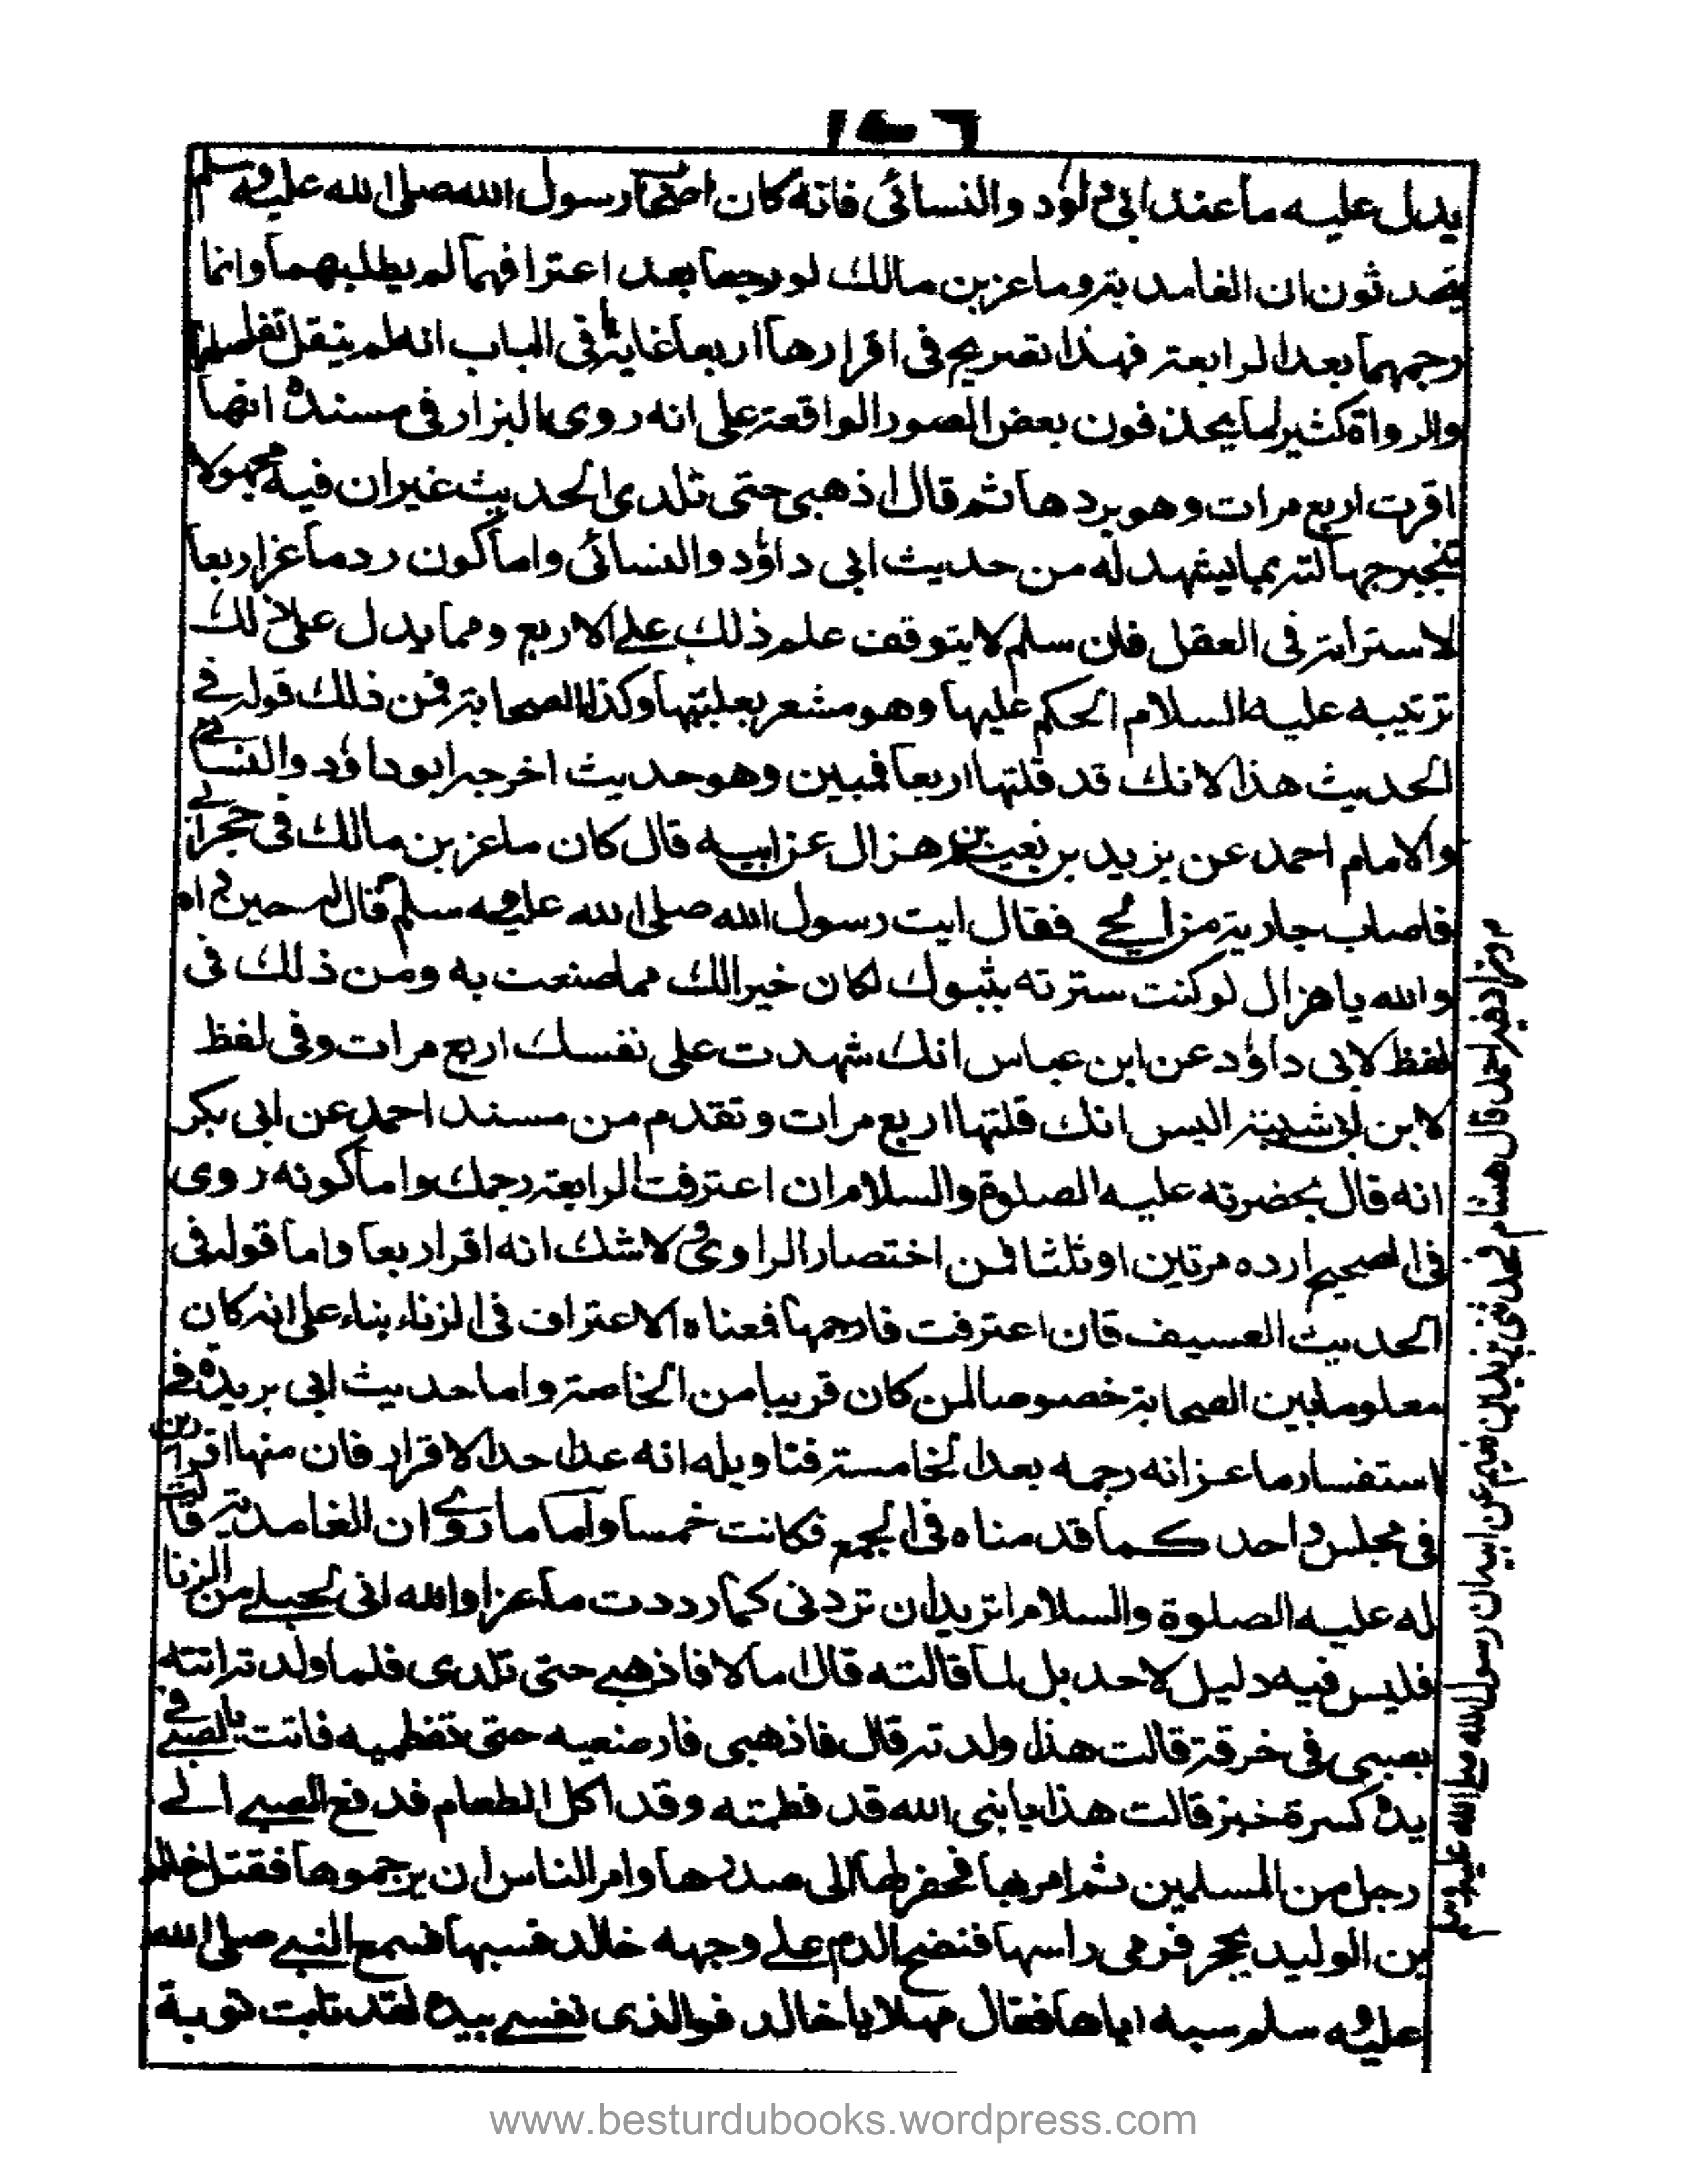 يدل عليه ما عند ابى داؤد والنسائى فانه كان اصحاب رسول الله صلى الله عليه وسلم
يتحدثون ان الغامدية وماعز بن مالك لو رجعا بعد اعترافهما لم يطلبهما وانما
رجمهما بعد الرابعة فهذا تصريح فى اقرارها اربعا غاية ما فى الباب انه لم ينقل تفاصيلها
والرواة كثيرا ما يحذفون بعض الصور الواقعة على انه روى البزار فى مسنده انها
اقرت اربع مرات وهو يردها ثم قال اذهبى حتى تلدى الحديث غير ان فيه مجهولا
تنجبر جهالته بما يشهد له من حديث ابى داؤد والنسائى واما كون رد ماعز اربعا
لاسترابته فى العقل فان سلم لا يتوقف علم ذلك على الاربع ومما يدل على ذلك
ترتيبه عليه السلام الحكم عليها وهو مشعر بعليتها وكذا الصحابة فمن ذلك قوله فى
الحديث هذا لانك قد قلتها اربعا فبمن وهو حديث اخرجه ابو داؤد والنسائى
والامام احمد عن يزيد بن نعيم بن هزال عن ابيه قال كان ماعز بن مالك فى حجر ابى
فاصاب جارية من الحى فقال ايت رسول الله صلى الله عليه وسلم قال له حين راه
والله يا هزال لو كنت سترته بثوبك لكان خيرا لك مما صنعت به ومن ذلك فى
لفظ لابى داؤد عن ابن عباس انك شهدت على نفسك اربع مرات وفى لفظ
لابن ابى شيبة اليس انك قلتها اربع مرات وتقدم من مسند احمد عن ابى بكر
انه قال بحضرته عليه الصلوة والسلام ان اعترفت الرابعة رجمك واما كونه روى
فى الصحيح رده مرتين او ثلثا فمن اختصار الراوى ولا شك انه اقر اربعا واما قوله فى
الحديث العسيف فان اعترفت فارجمها فمعناه الاعتراف فى الزناء بناء على انه كان
معلوما بين الصحابة خصوصا لمن كان قريبا من الخاصة واما حديث ابى بريدة فى
استفسار ماعز انه رجمه بعد الخامسة فتاويله انه عد احد الاقرار فان منها اقرارين
فى مجلس واحد كما قدمناه فى الجمع فكانت خمسا واما ما روى ان الغامدية قالت
له عليه الصلوة والسلام اتريد ان تردنى كما رددت ماعزا والله انى لحبلى من الزنا
فليس فيه دليل لاحد بل لما قالته قال اما لا فاذهبى حتى تلدى فلما ولدته اتته
بصبى فى خرقة قالت هذا ولدته قال فاذهبى فارضعيه حتى تفطميه فاتت بالصبى فى
يده كسرة خبز قالت هذا يا نبى الله قد فطمته وقد اكل الطعام فدفع الصبى الى
رجل من المسلمين ثم امر بها فحفر لها الى صدرها وامر الناس ان يرجموها فقتل خالد
بن الوليد بحجر فرمى راسها فنضح الدم على وجهه خالد فسبها فسمع النبى صلى الله
عليه وسلم سبه اياها فقال مهلا يا خالد فوالذى نفسى بيده لقد تابت توبة
احمد قال هشام فحدثنى يزيد بن نعيم عن ابيه ان رسول الله صلى الله عليه وسلم
www.besturdubooks.wordpress.com